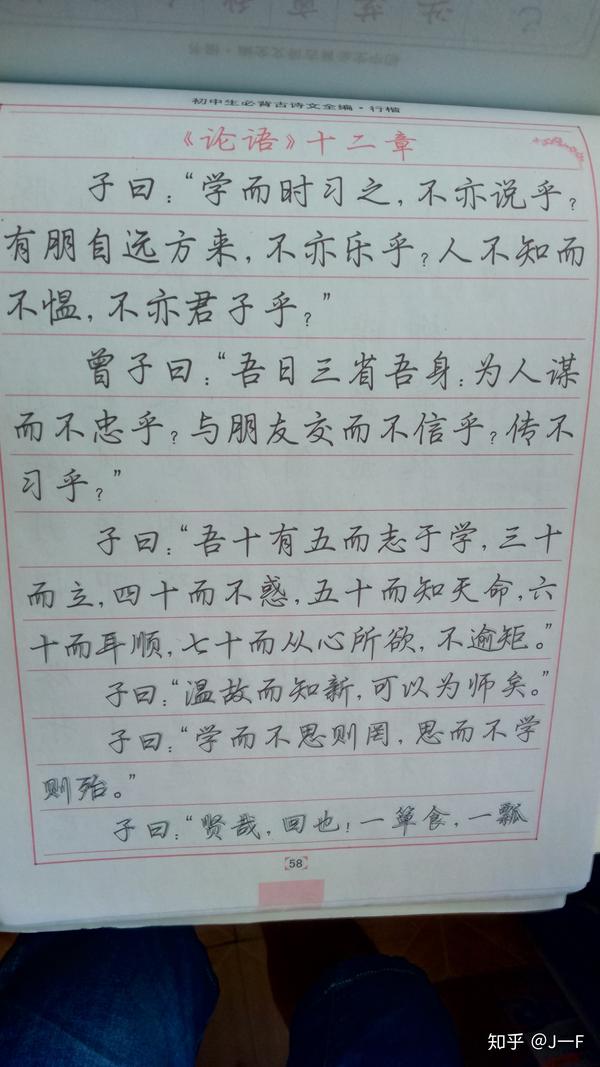 初中生必背古诗文全编·行楷
《论语》十二章
子曰：“学而时习之，不亦说乎？
有朋自远方来，不亦乐乎？人不知而
不愠，不亦君子乎？”
曾子曰：“吾日三省吾身：为人谋
而不忠乎？与朋友交而不信乎？传不
习乎？”
子曰：“吾十有五而志于学，三十
而立，四十而不惑，五十而知天命，六
十而耳顺，七十而从心所欲，不逾矩。”
子曰：“温故而知新，可以为师矣。”
子曰：“学而不思则罔，思而不学
则殆。”
子曰：“贤哉，回也！一箪食，一瓢
58
知乎 @J一F